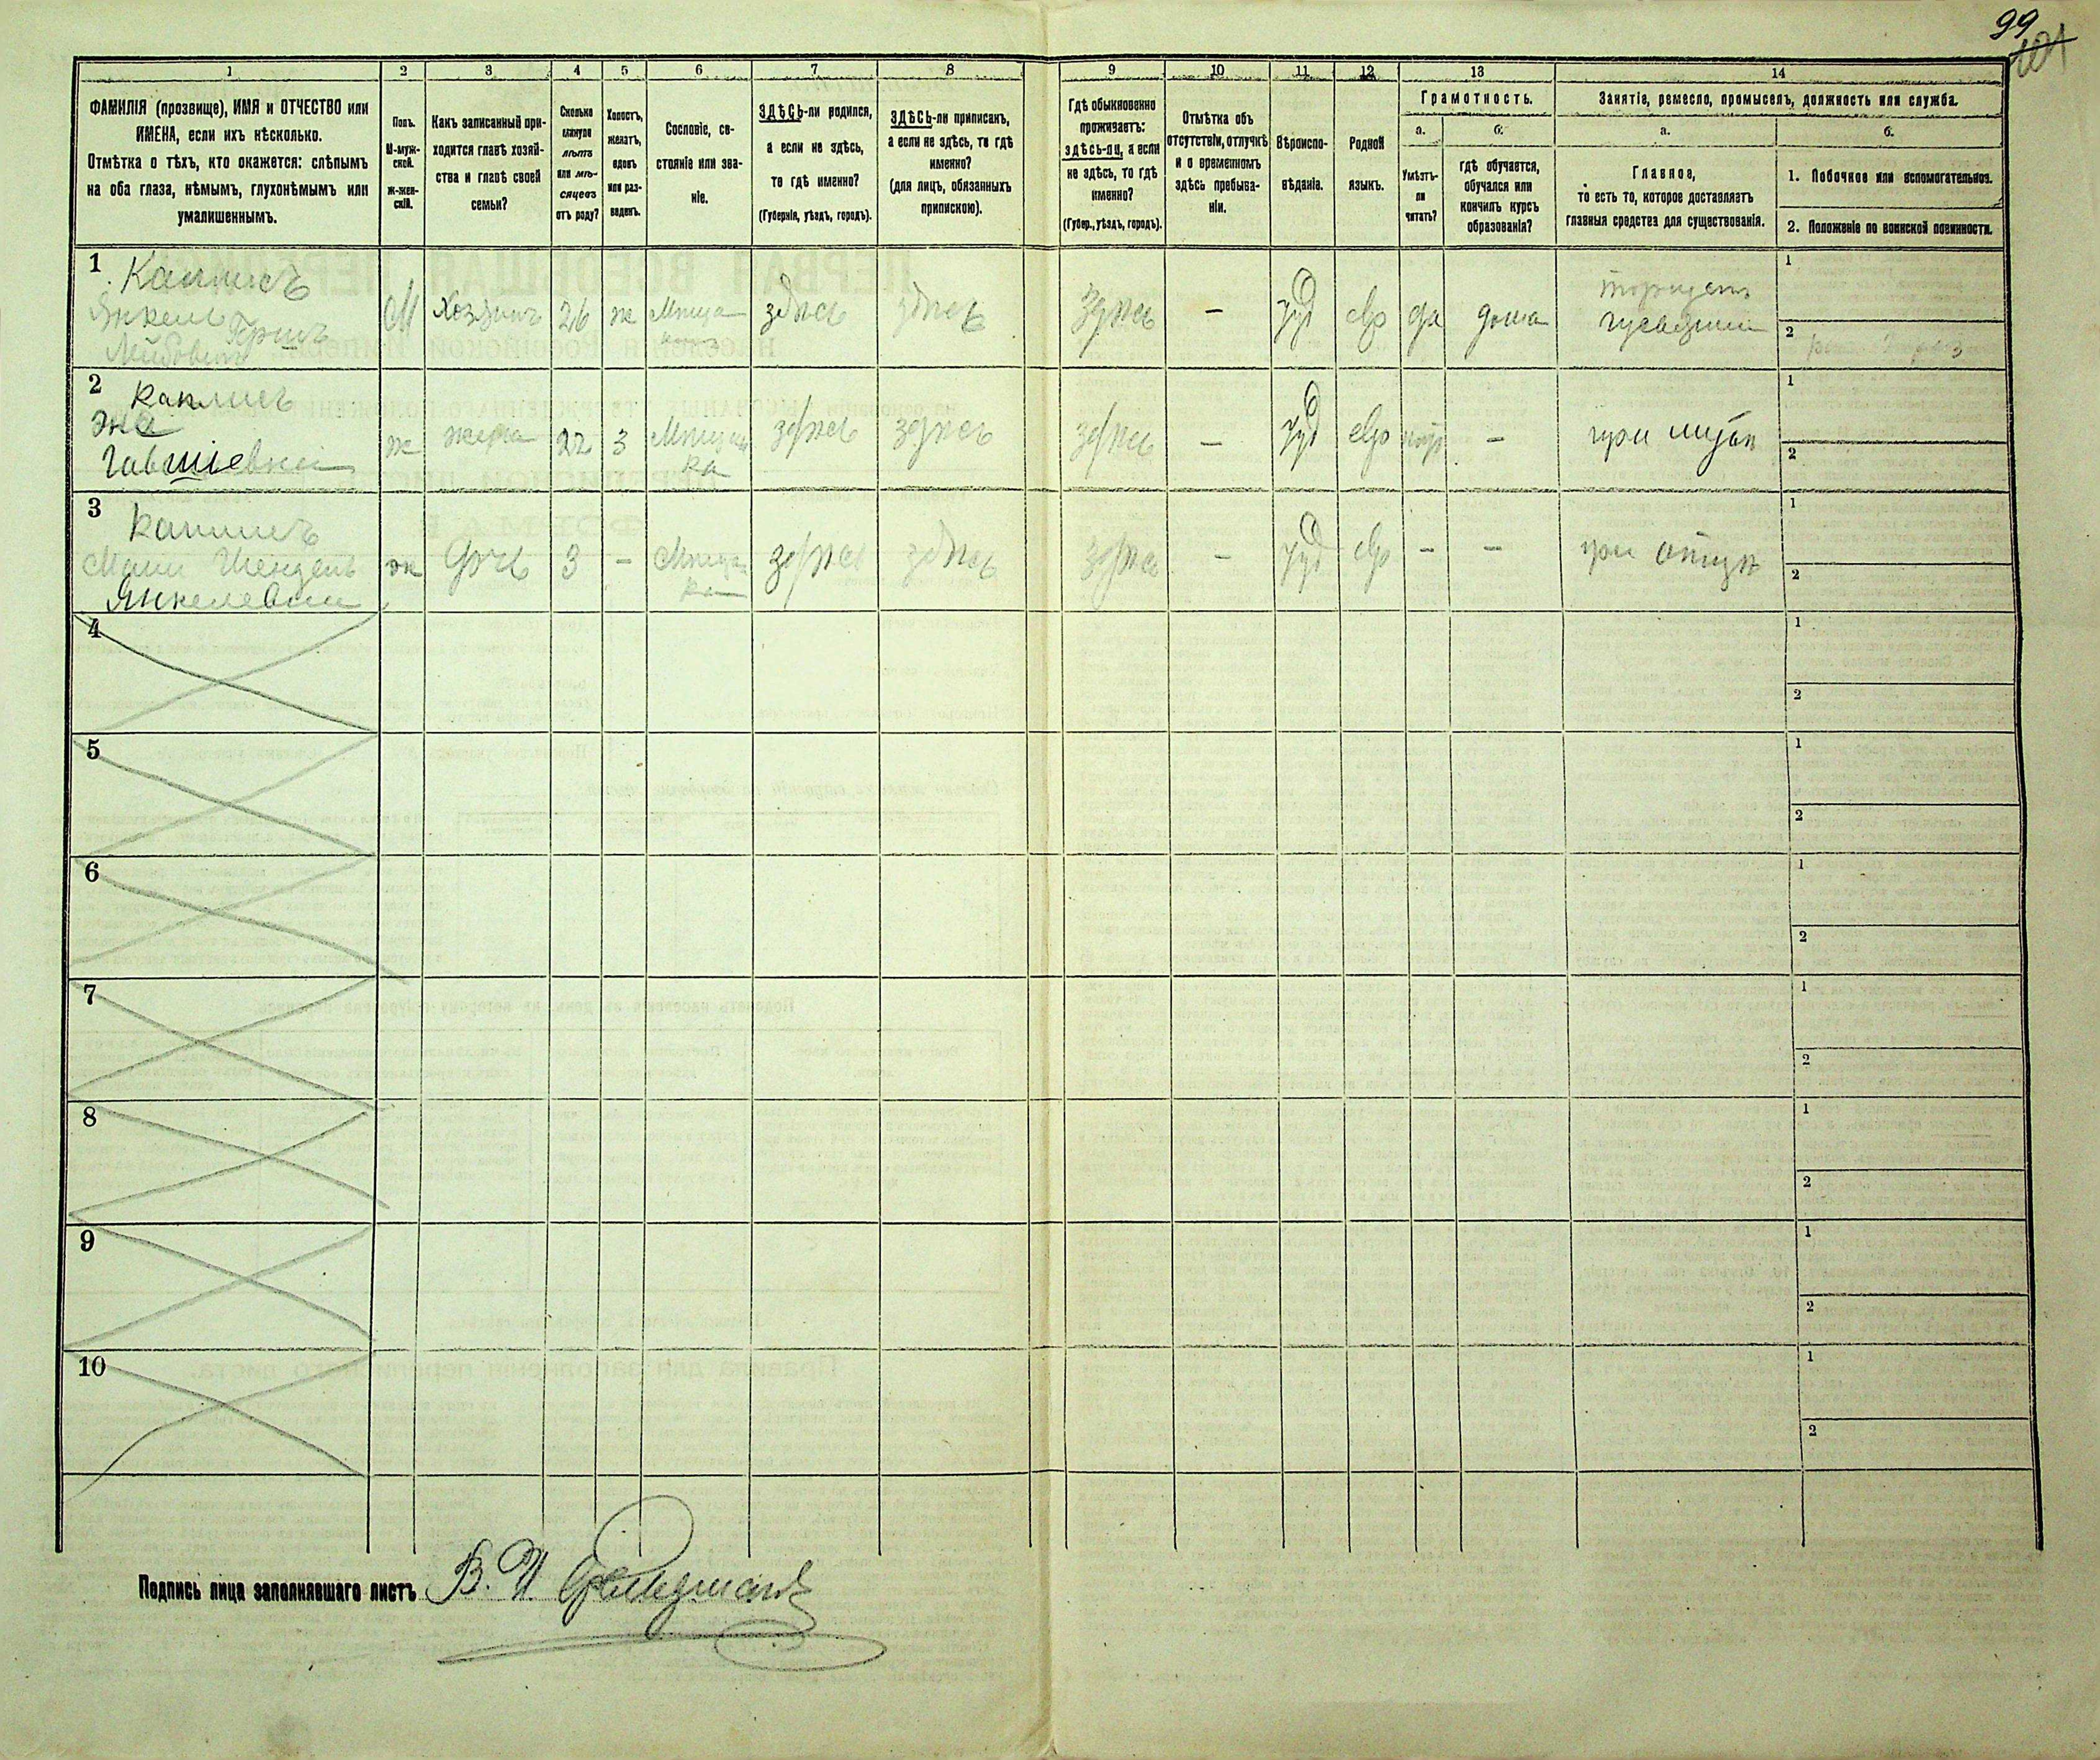 99
101
1 2 3 4 5 6 7 8 9 10 11 12 13 14
ФАМИЛІЯ (прозвище), ИМЯ и ОТЧЕСТВО или
ИМЕНА, если ихъ нѣсколько.
Отмѣтка о тѣхъ, кто окажется: слѣпымъ
на оба глаза, нѣмымъ, глухонѣмымъ или
умалишеннымъ.
Полъ.
М-муж-
ской.
Ж-жен-
скій.
Какъ записанный при-
ходится главѣ хозяй-
ства и главѣ своей
семьи?
Сколько
минуло
лѣтъ
или мѣ-
сяцевъ
отъ роду?
Холостъ,
женатъ,
вдовъ
или раз-
веденъ.
Сословіе, со-
стояніе или зва-
ніе.
ЗДѢСЬ-ли родился,
а если не здѣсь,
то гдѣ именно?
(Губернія, уѣздъ, городъ).
ЗДѢСЬ-ли приписанъ,
а если не здѣсь, то гдѣ
именно?
(для лицъ, обязанныхъ
припискою).
Гдѣ обыкновенно
проживаетъ:
здѣсь-ли, а если
не здѣсь, то гдѣ
именно?
(Губер., уѣздъ, городъ).
Отмѣтка объ
отсутствіи, отлучкѣ
и о временномъ
здѣсь пребыва-
ніи.
Вѣроиспо-
вѣданіе.
Родной
языкъ.
Грамотность.
а.
Умѣетъ-
ли
читать?
б.
гдѣ обучается,
обучался или
кончилъ курсъ
образованія?
Занятіе, ремесло, промыселъ, должность или служба.
а.
Главное,
то есть то, которое доставляетъ
главныя средства для существованія.
б.
1. Побочное или вспомогательное.
2. Положеніе по воинской повинности.
1 Каплисъ
Янкель Гершъ
М Хозяинъ 26 ж Мѣща здѣсь здѣсь здѣсь — Іуд евр да дома
1
2
2 Каплисъ
Эна
ж жена 22 З Мѣщан здѣсь здѣсь здѣсь — Іуд евр — при мужѣ
ка
1
2
3 Каплисъ
Шендель
Янкелевна
ж дочь 3 — Мѣщан здѣсь здѣсь здѣсь — Іуд евр — — при отцѣ
ка
1
2
4
1
2
5
1
2
6
1
2
7
1
2
8
1
2
9
1
2
10
1
2
Подпись лица заполнявшаго листъ В. И.